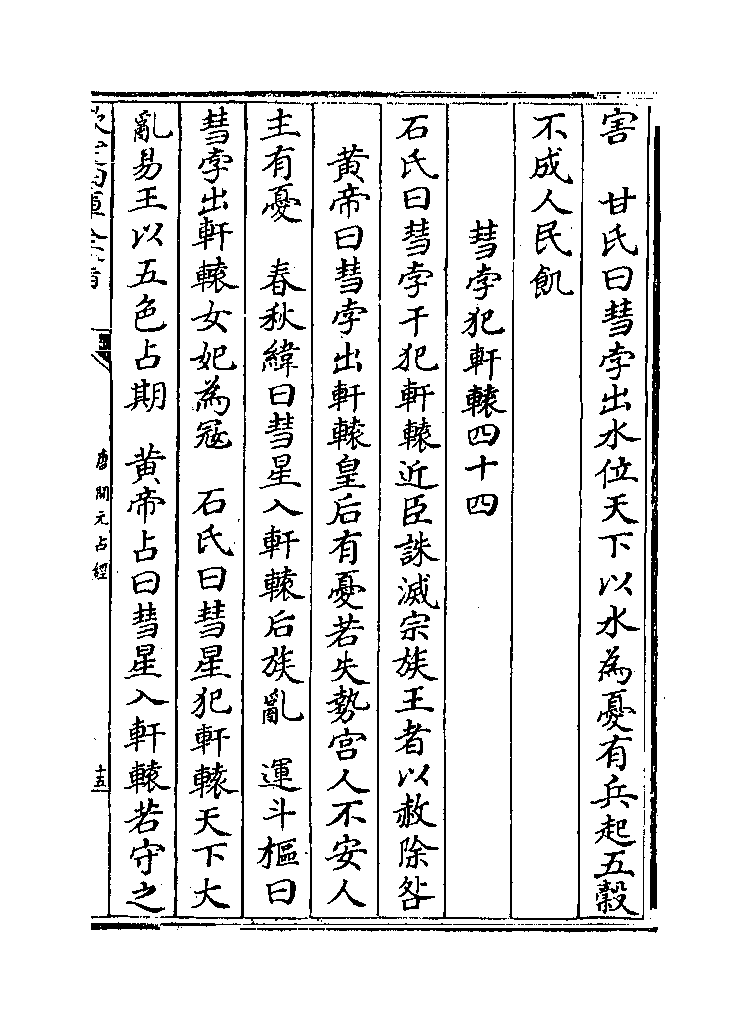 害　甘氏曰彗孛出水位天下以水為憂有兵起五穀
不成人民飢
彗孛犯軒轅四十四
石氏曰彗孛干犯軒轅近臣誅滅宗族王者以赦除咎
黄帝曰彗孛出軒轅皇后有憂若失勢宫人不安人
主有憂　春秋緯曰彗星入軒轅后族亂　運斗樞曰
彗孛出軒轅女妃為冦　石氏曰彗星犯軒轅天下大
亂易王以五色占期　黄帝占曰彗星入軒轅若守之
唐開元占經
十五